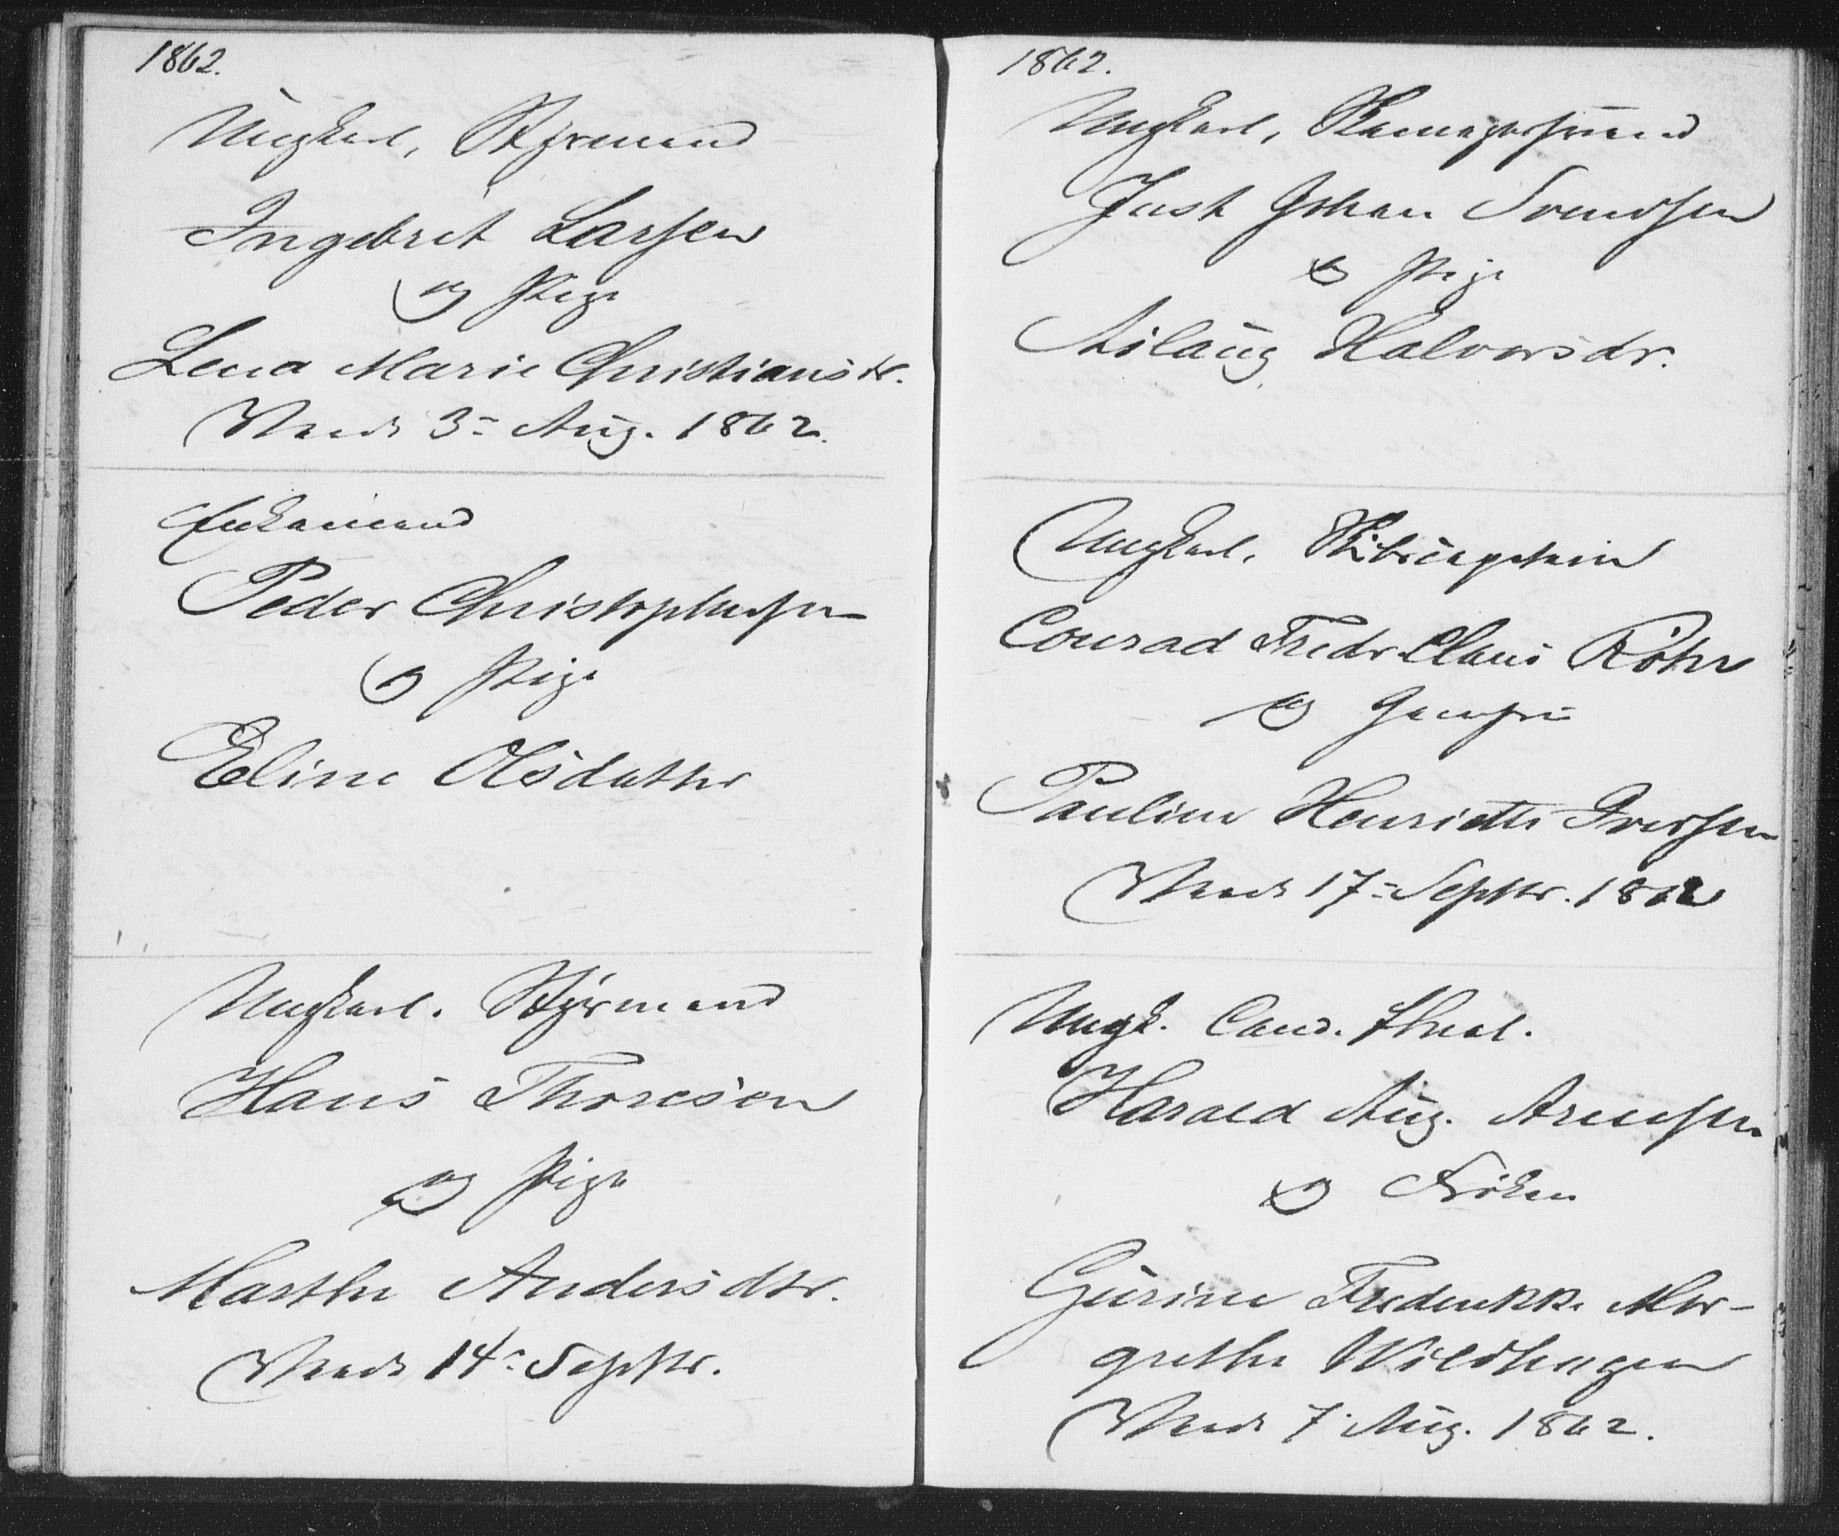 1862.
Ungkarl, Styrmand
Ingebret Larsen
og Pige
Lena Marie Christiansdr.
Viede 3= Aug. 1862.
Enkemand
Peder Christophersen
og Pige
Eline Olsdatter
Ungkarl. Styrmand
Hans Thoresen
og Pige
Marthe Andersdtr.
Viede 14= Septbr.
1862.
Ungkarl,
Just Johan Svendsen
og Pige
Aslaug Halvorsdr.
Ungkarl. Skibscaptein
Conrad Fredr. Claus Röhr
og Jomfru
Pauline Henriette Iversen
Viede 17= Septbr. 1862
Ungk. Cand. theol.
Harald Aug. Arnesen
og Frøken
Gurine Fredrikke Mar-
grethe Wildhagen
Viede 7. Aug. 1862.